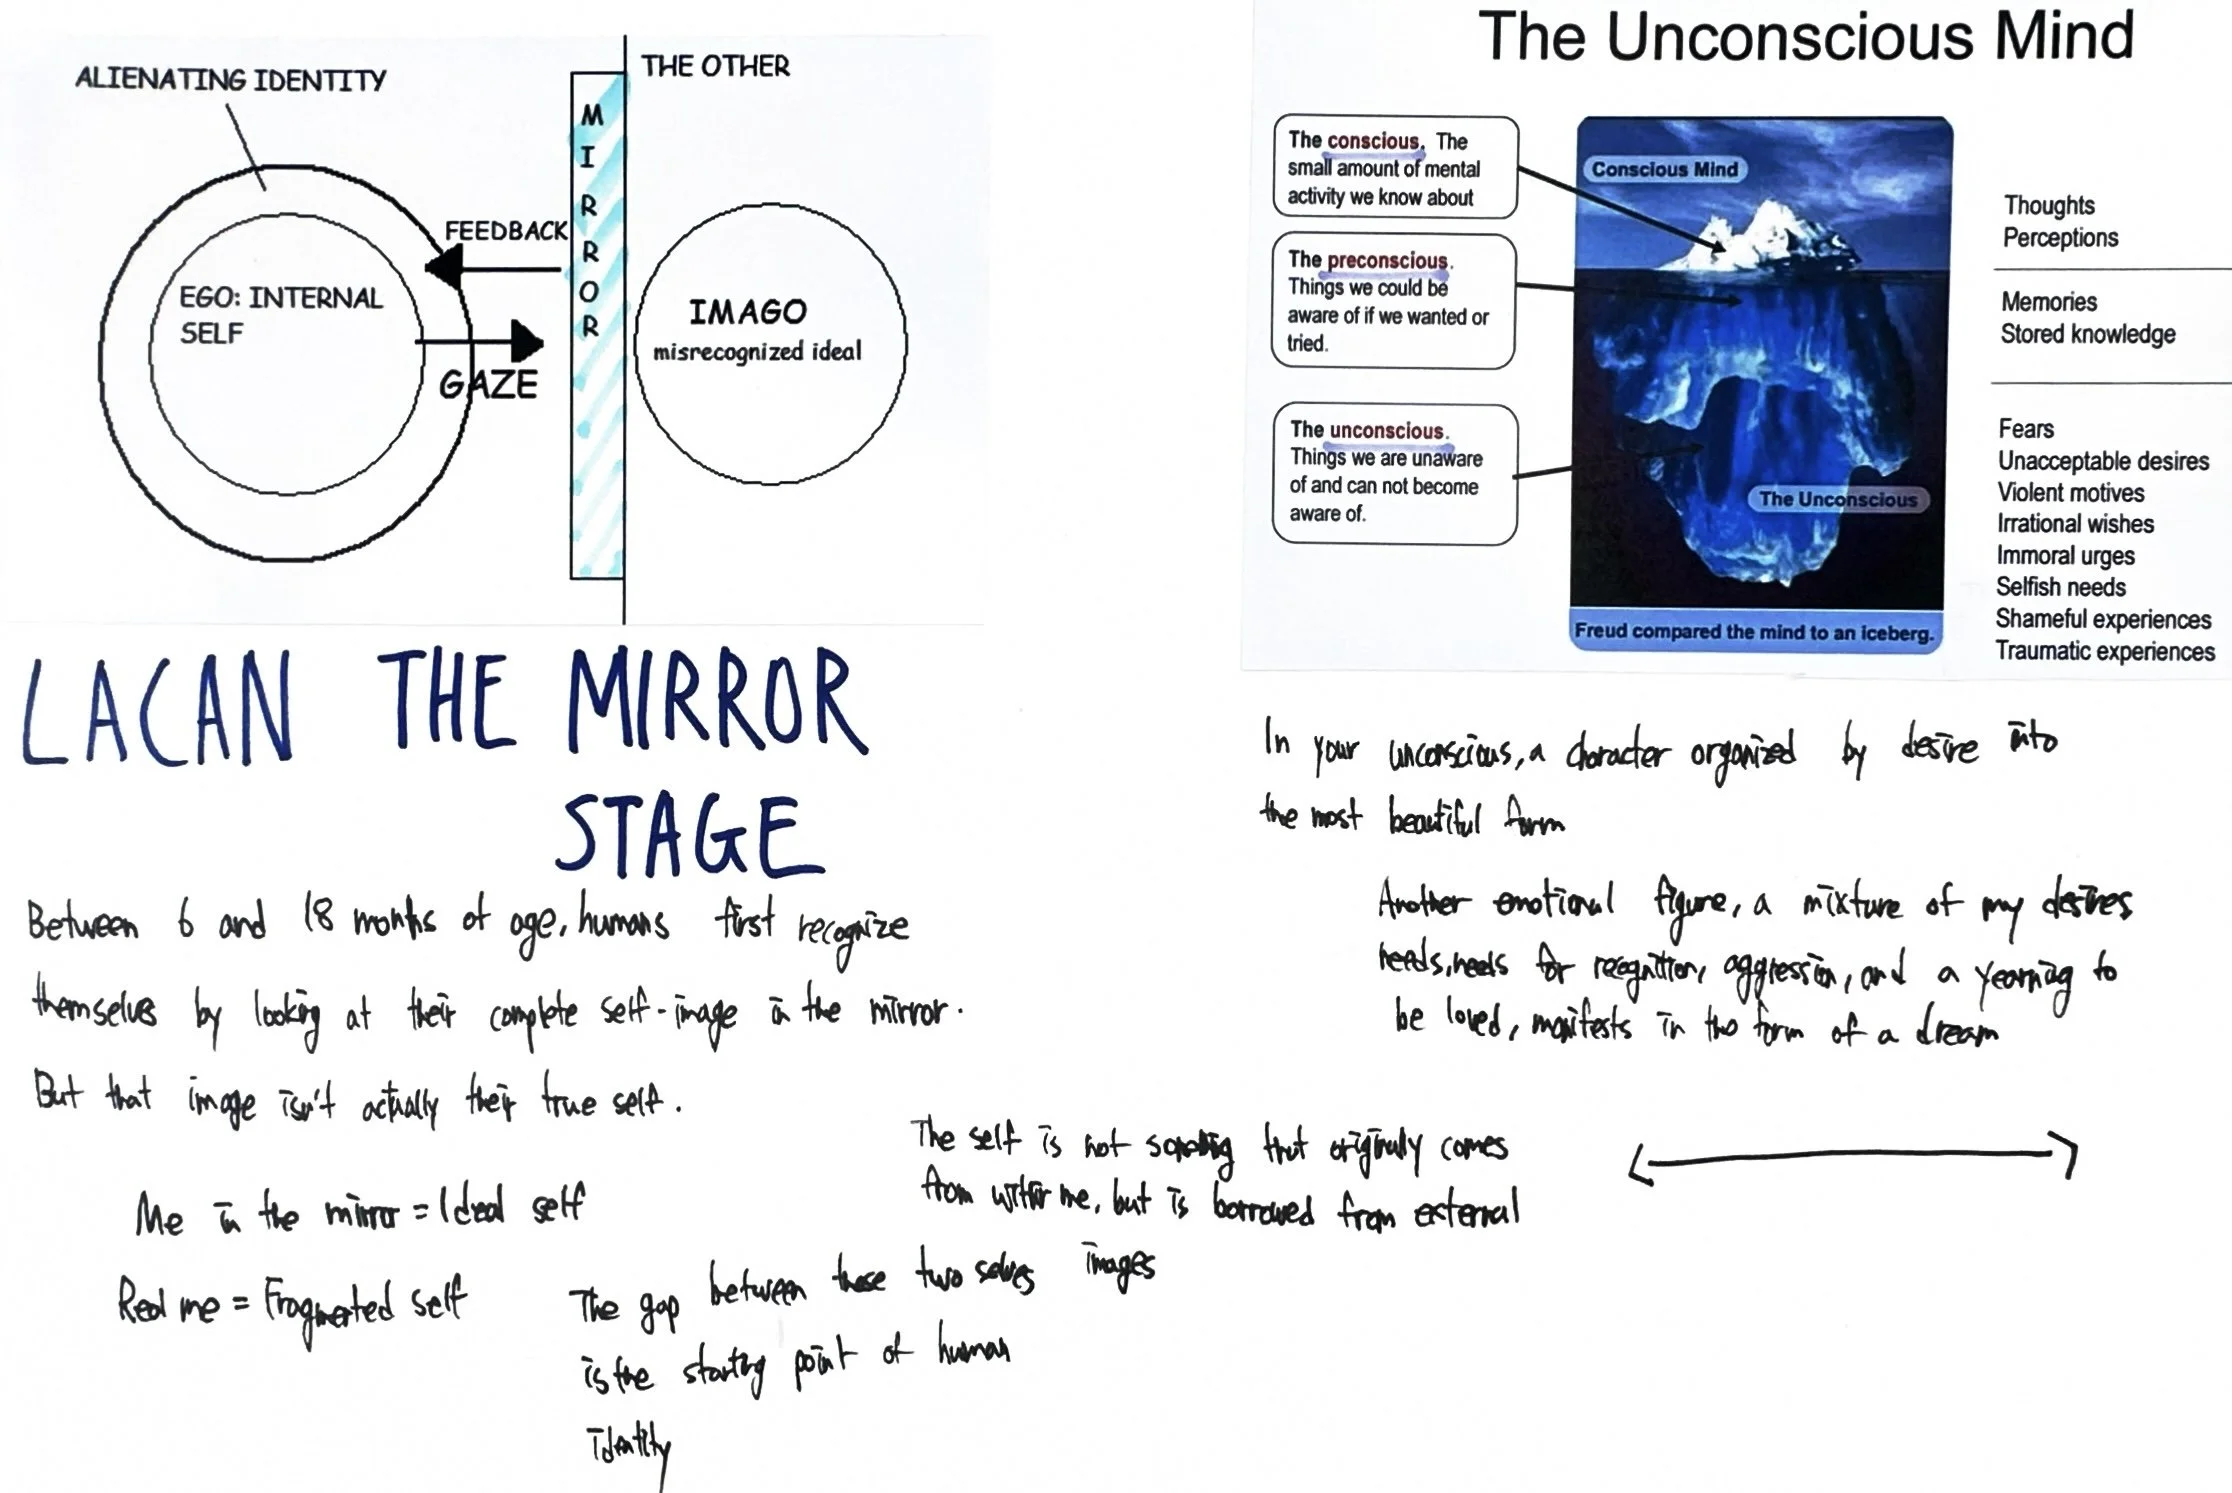 ALIENATING IDENTITY
THE OTHER
MIRROR
FEEDBACK
EGO: INTERNAL
SELF
GAZE
IMAGO
misrecognized ideal
LACAN THE MIRROR
STAGE
Between 6 and 18 months of age, humans first recognize
themselves by looking at their complete self-image in the mirror.
But that image isn't actually their true self.
Me in the mirror = Ideal self
Real me = Fragmented self
The gap between these two selves
is the starting point of human
identity
The self is not something that originally comes
from within me, but is borrowed from external
images
The Unconscious Mind
The conscious. The
small amount of mental
activity we know about
The preconscious.
Things we could be
aware of if we wanted or
tried.
The unconscious.
Things we are unaware
of and can not become
aware of.
Conscious Mind
The Unconscious
Freud compared the mind to an iceberg.
Thoughts
Perceptions
Memories
Stored knowledge
Fears
Unacceptable desires
Violent motives
Irrational wishes
Immoral urges
Selfish needs
Shameful experiences
Traumatic experiences
In your unconscious, a character organized by desire into
the most beautiful form
Another emotional figure, a mixture of my desires
needs, needs for recognition, aggression, and a yearning to
be loved, manifests in the form of a dream